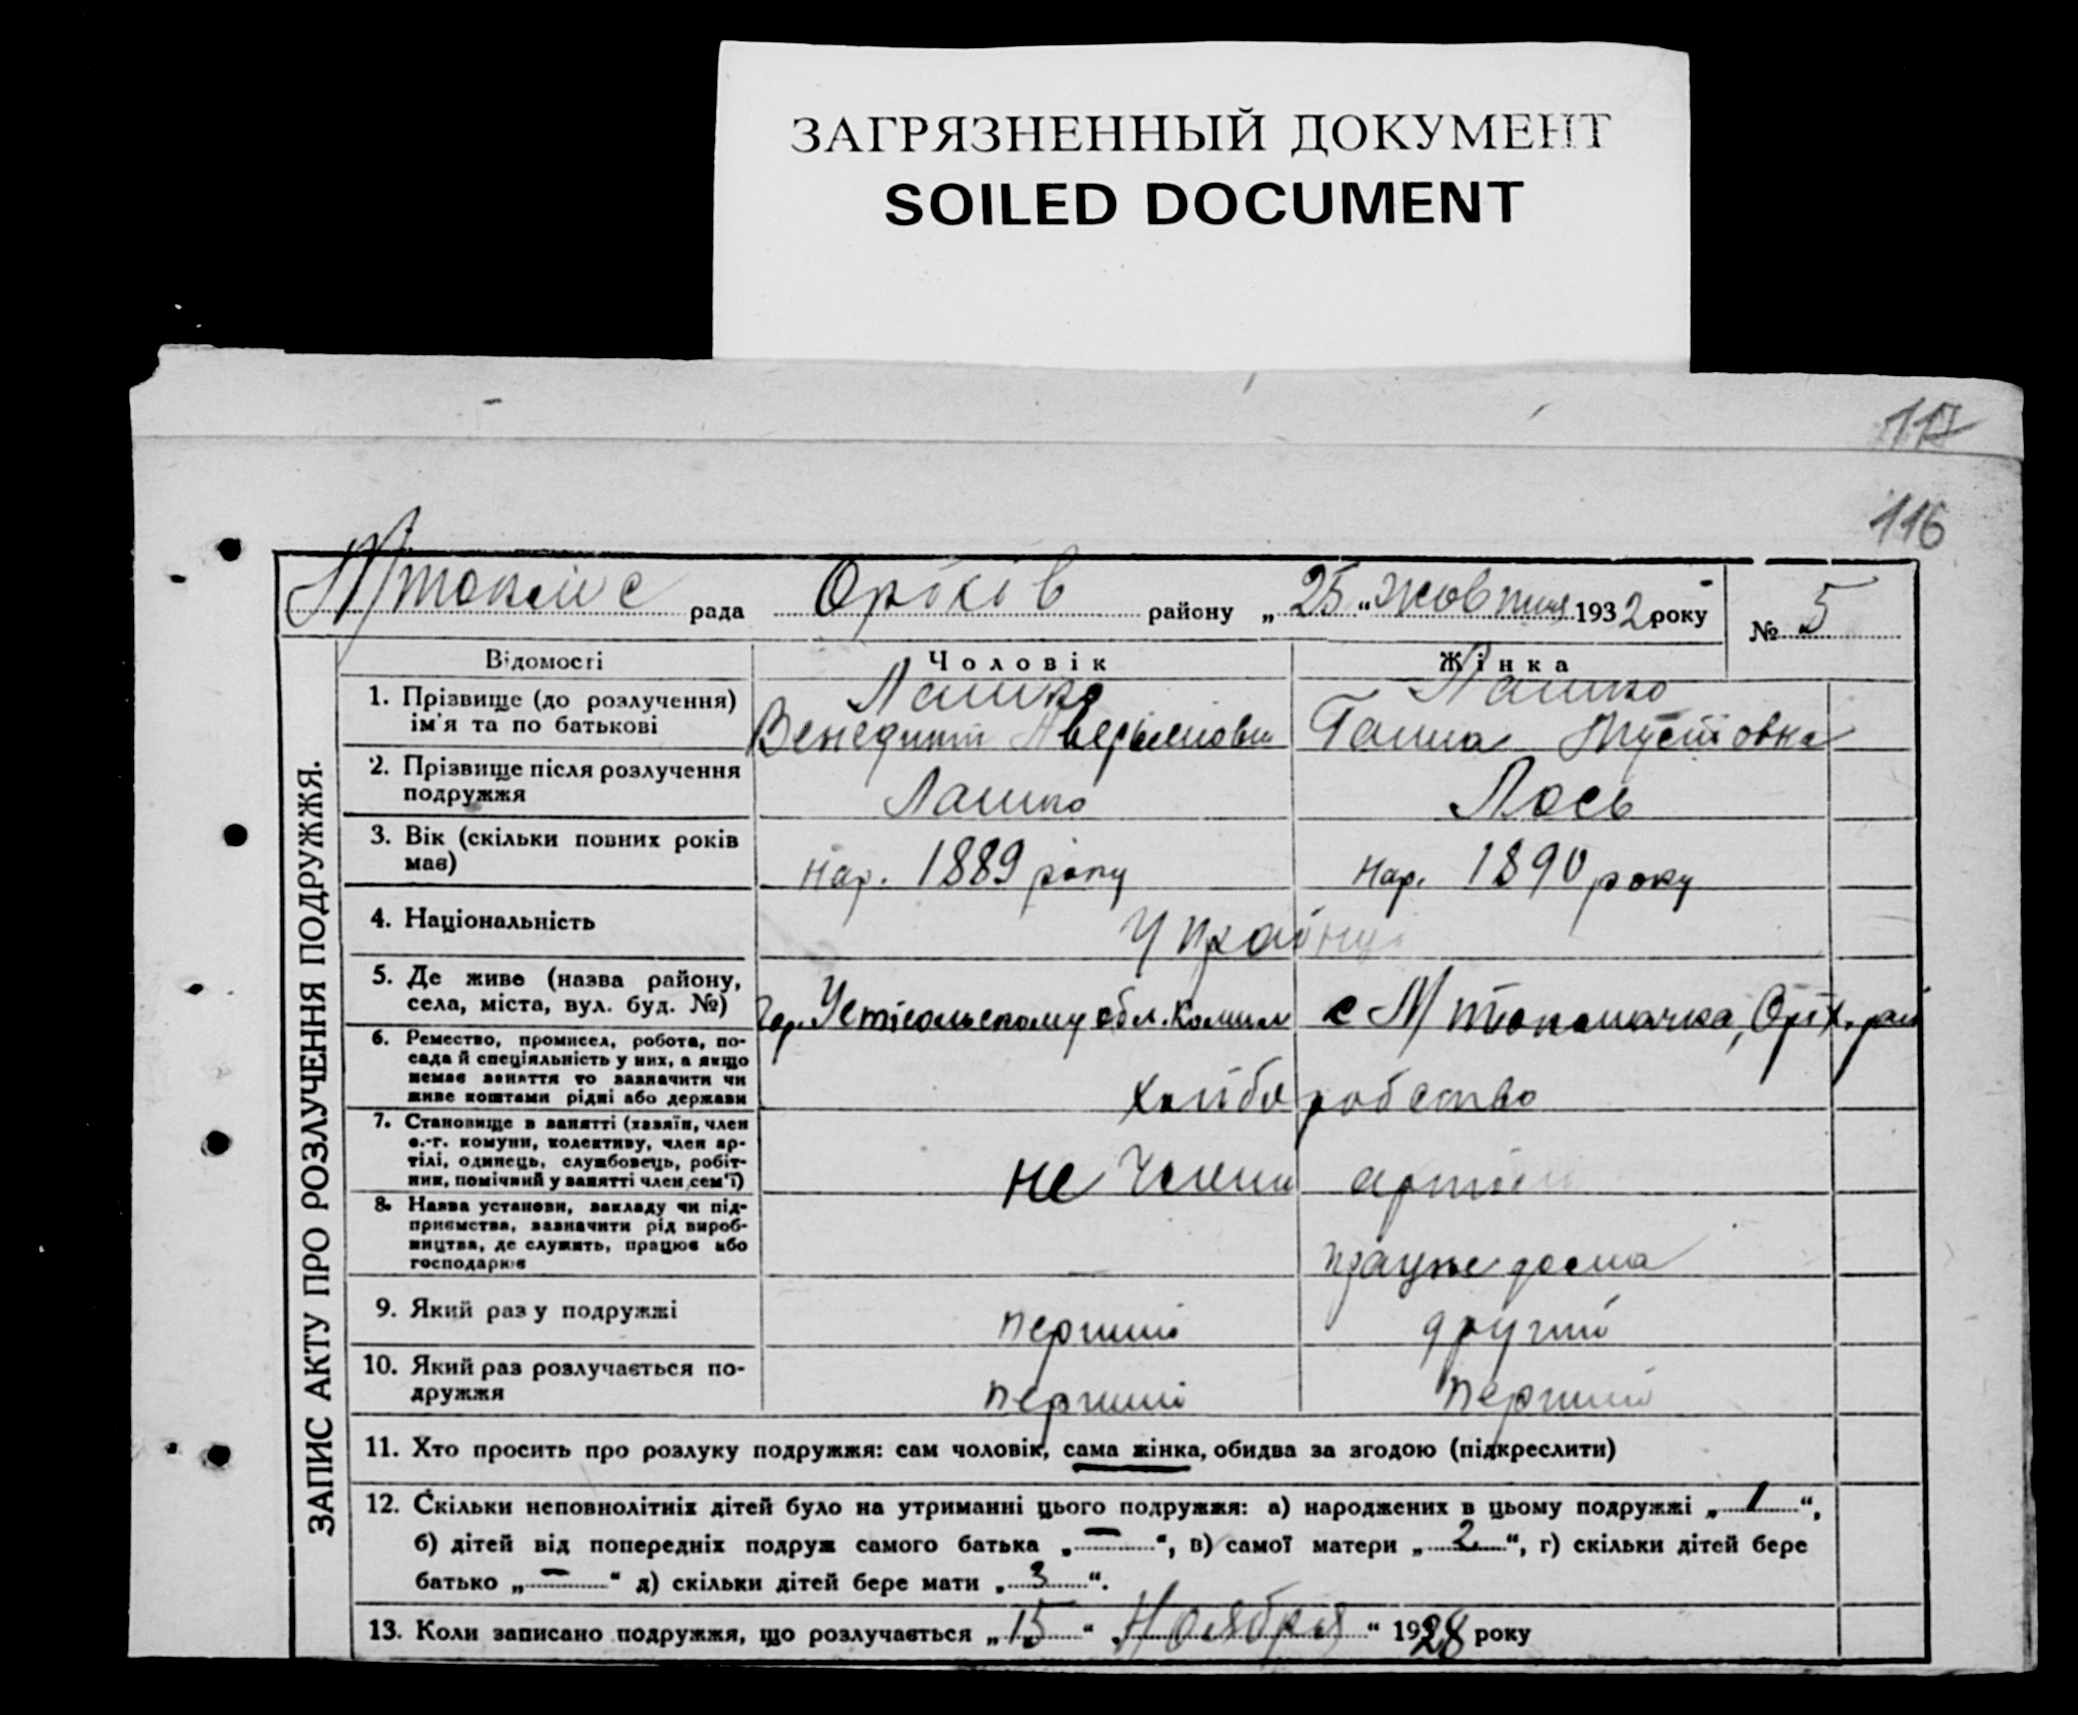 ЗАГРЯЗНЕННЫЙ ДОКУМЕНТ
SOILED DOCUMENT
117
116
рада Оріхів району „25“ Жовтня 1932 року № 5
ЗАПИС АКТУ ПРО РОЗЛУЧЕННЯ ПОДРУЖЖЯ.
Відомості Чоловік Жінка
1. Прізвище (до розлучення) Лашко Лашко
ім'я та по батькові Венедикт Ганна
2. Прізвище після розлучення
подружжя Лашко Лось
3. Вік (скільки повних років
має) нар. 1889 року нар. 1890 року
4. Національність Україн
5. Де живе (назва району,
села, міста, вул. буд. №)
6. Ремество, промисел, робота, по-
сада й спеціяльність у них, а якщо
немає заняття то зазначити чи
живе коштами рідні або держави хліборобство
7. Становище в занятті (хазяїн, член
с.-г. комуни, колективу, член ар-
тілі, одинець, службовець, робіт-
ник, помічний у занятті член сем'ї) не члени артілі
8. Назва установи, закладу чи під-
приємства, зазначити рід вироб-
ництва, де служить, працює або
господарює працює дома
9. Який раз у подружжі перший другий
10. Який раз розлучається по-
дружжя перший перший
11. Хто просить про розлуку подружжя: сам чоловік, сама жінка, обидва за згодою (підкреслити)
12. Скільки неповнолітніх дітей було на утриманні цього подружжя: а) народжених в цьому подружжі „1“,
б) дітей від попередніх подруж самого батька „—“, в) самої матери „2“, г) скільки дітей бере
батько „—“ д) скільки дітей бере мати „3“.
13. Коли записано подружжя, що розлучається „15“ Ноября“ 1928 року